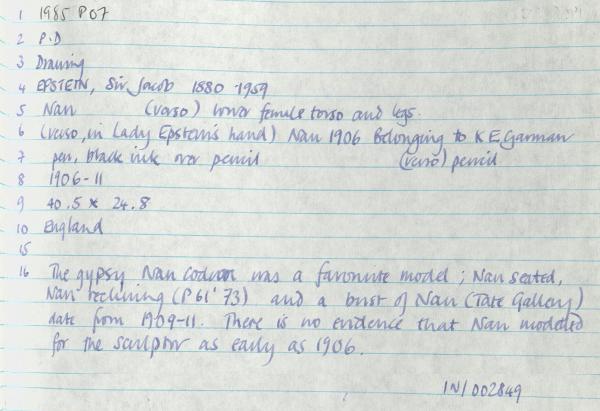 1 1985 P07
2 P.D
3 Drawing
4 EPSTEIN, Sir Jacob 1880-1959
5 Nan (verso) lower female torso and legs
6 (verso, in Lady Epstein's hand) Nan 1906 Belonging to K E Garman
7 pen, black ink over pencil (verso) pencil
8 1906-11
9 40.5 x 24.8
10 England
15
16 The gypsy Nan Codron was a favourite model; Nan seated,
Nan reclining (P61'73) and a bust of Nan (Tate Gallery)
date from 1909-11. There is no evidence that Nan modelled
for the sculptor as early as 1906.
IN/002849